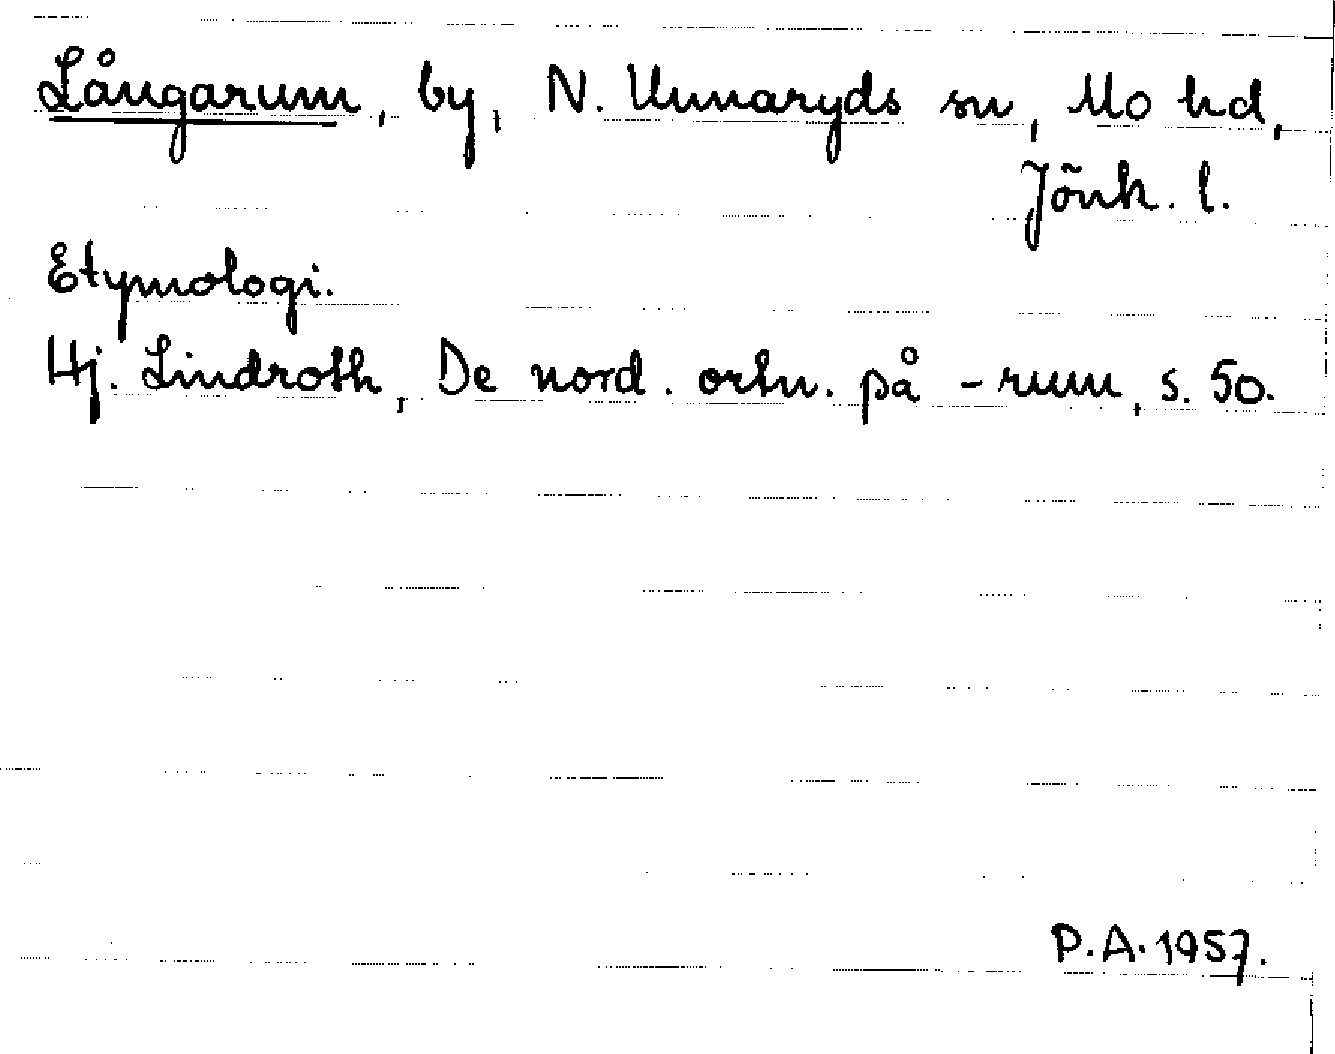 Långarum, by, N. Unnaryds sn, Mo hd,
Jönk. l.
Etymologi.
Hj. Lindroth, De nord. ortn. på -rum, s. 50.
P.A. 1957.